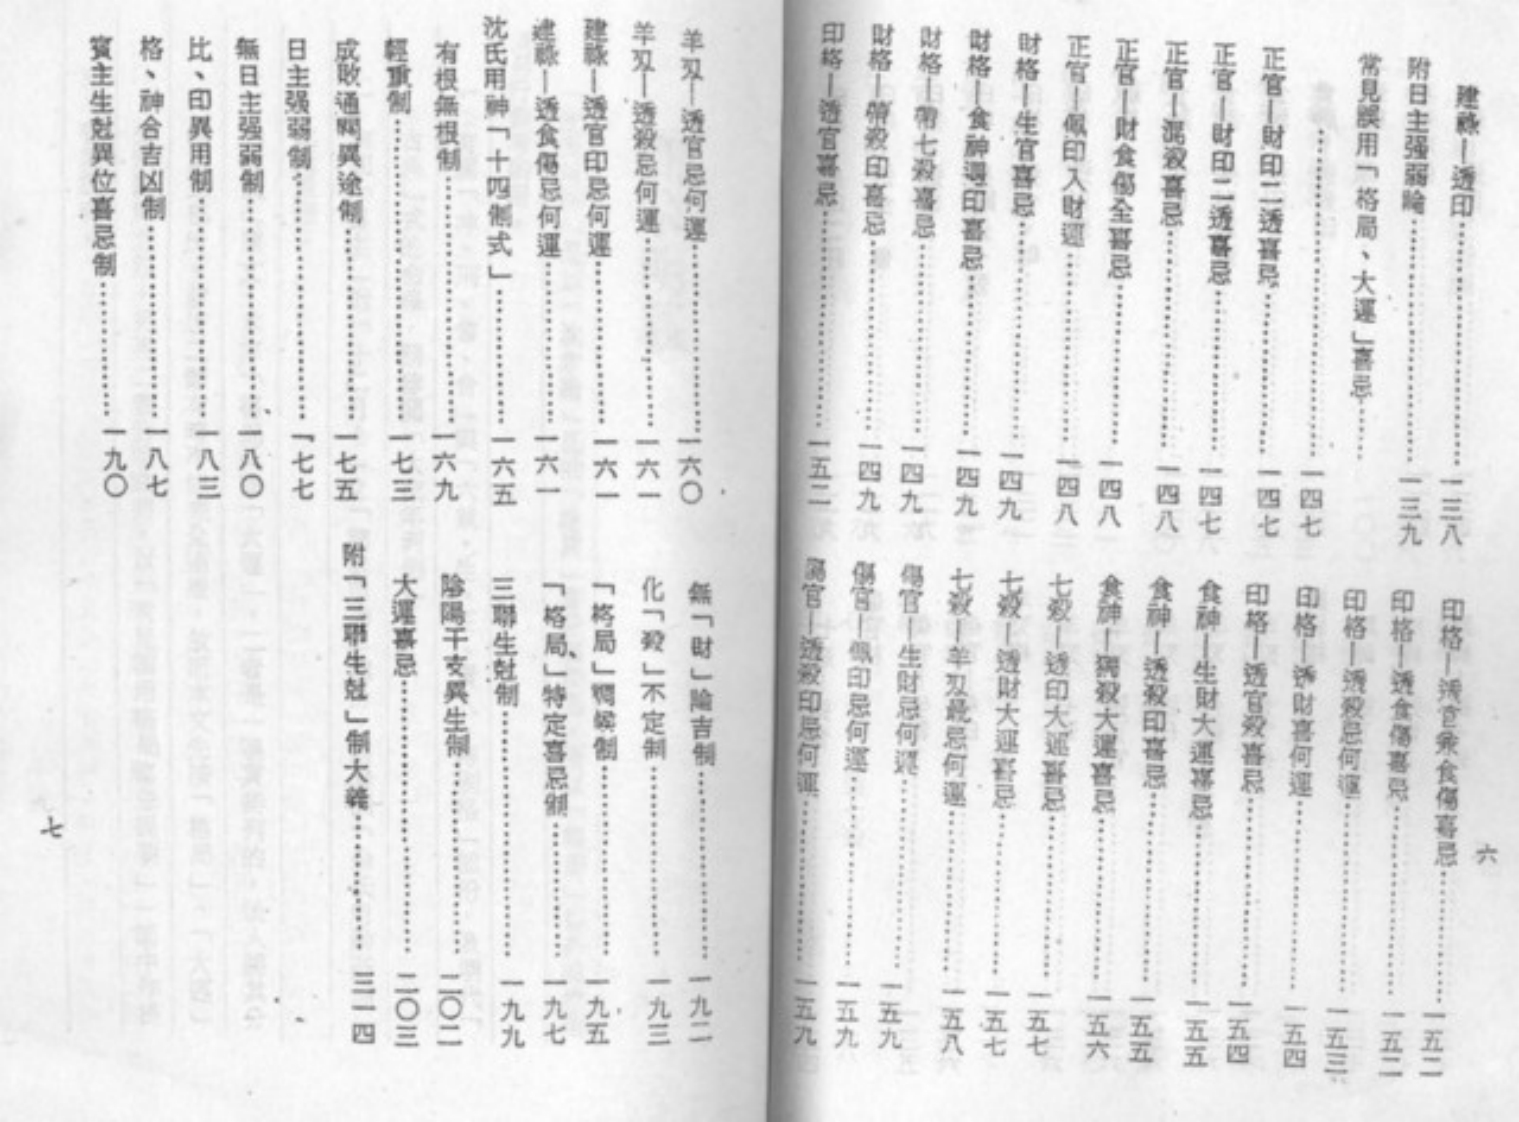 六
建祿—透印…………一三八
附日主强弱論…………一三九
常見誤用「格局、大運」喜忌……
…………一四七
正官—財印二透喜忌…………一四七
正官—財印二透喜忌…………一四七
正官—混殺喜忌…………一四八
正官—財食傷全喜忌…………一四八
正官—佩印入財運…………一四八
財格—生官喜忌…………一四九
財格—食神潯印喜忌…………一四九
財格—帶七殺喜忌…………一四九
財格—帶殺印喜忌…………一四九
印格—透官喜忌…………一五二
印格—透官兼食傷喜忌…………一五二
印格—透食傷喜忌…………一五二
印格—透殺忌何運…………一五三
印格—透財喜何運…………一五四
印格—透官殺喜忌…………一五四
食神—生財大運喜忌…………一五五
食神—透殺印喜忌…………一五五
食神—獨殺大運喜忌…………一五六
七殺—透印大運喜忌…………一五七
七殺—透財大運喜忌…………一五七
七殺—羊刄最忌何運…………一五八
傷官—生財忌何運…………一五九
傷官—佩印忌何運…………一五九
傷官—透殺印忌何運…………一五九
羊刄—透官忌何運…………一六〇
羊刄—透殺忌何運…………一六一
建祿—透官印忌何運…………一六一
建祿—透食傷忌何運…………一六一
沈氏用神「十四制式」…………一六五
有根無根制…………一六九
輕重制…………一七三
成敗通關異途制…………一七五
日主强弱制…………一七七
無日主强弱制…………一八〇
比、印異用制…………一八三
格、神合吉凶制…………一八七
賓主生尅異位喜忌制…………一九〇
無「財」論吉制…………一九二
化「殺」不定制…………一九三
「格局」調候制…………一九五
「格局」特定喜忌制…………一九七
三聯生尅制…………一九九
陰陽干支異生制…………二〇二
大運喜忌…………二〇三
附「三聯生尅」制大義…………三一四
七